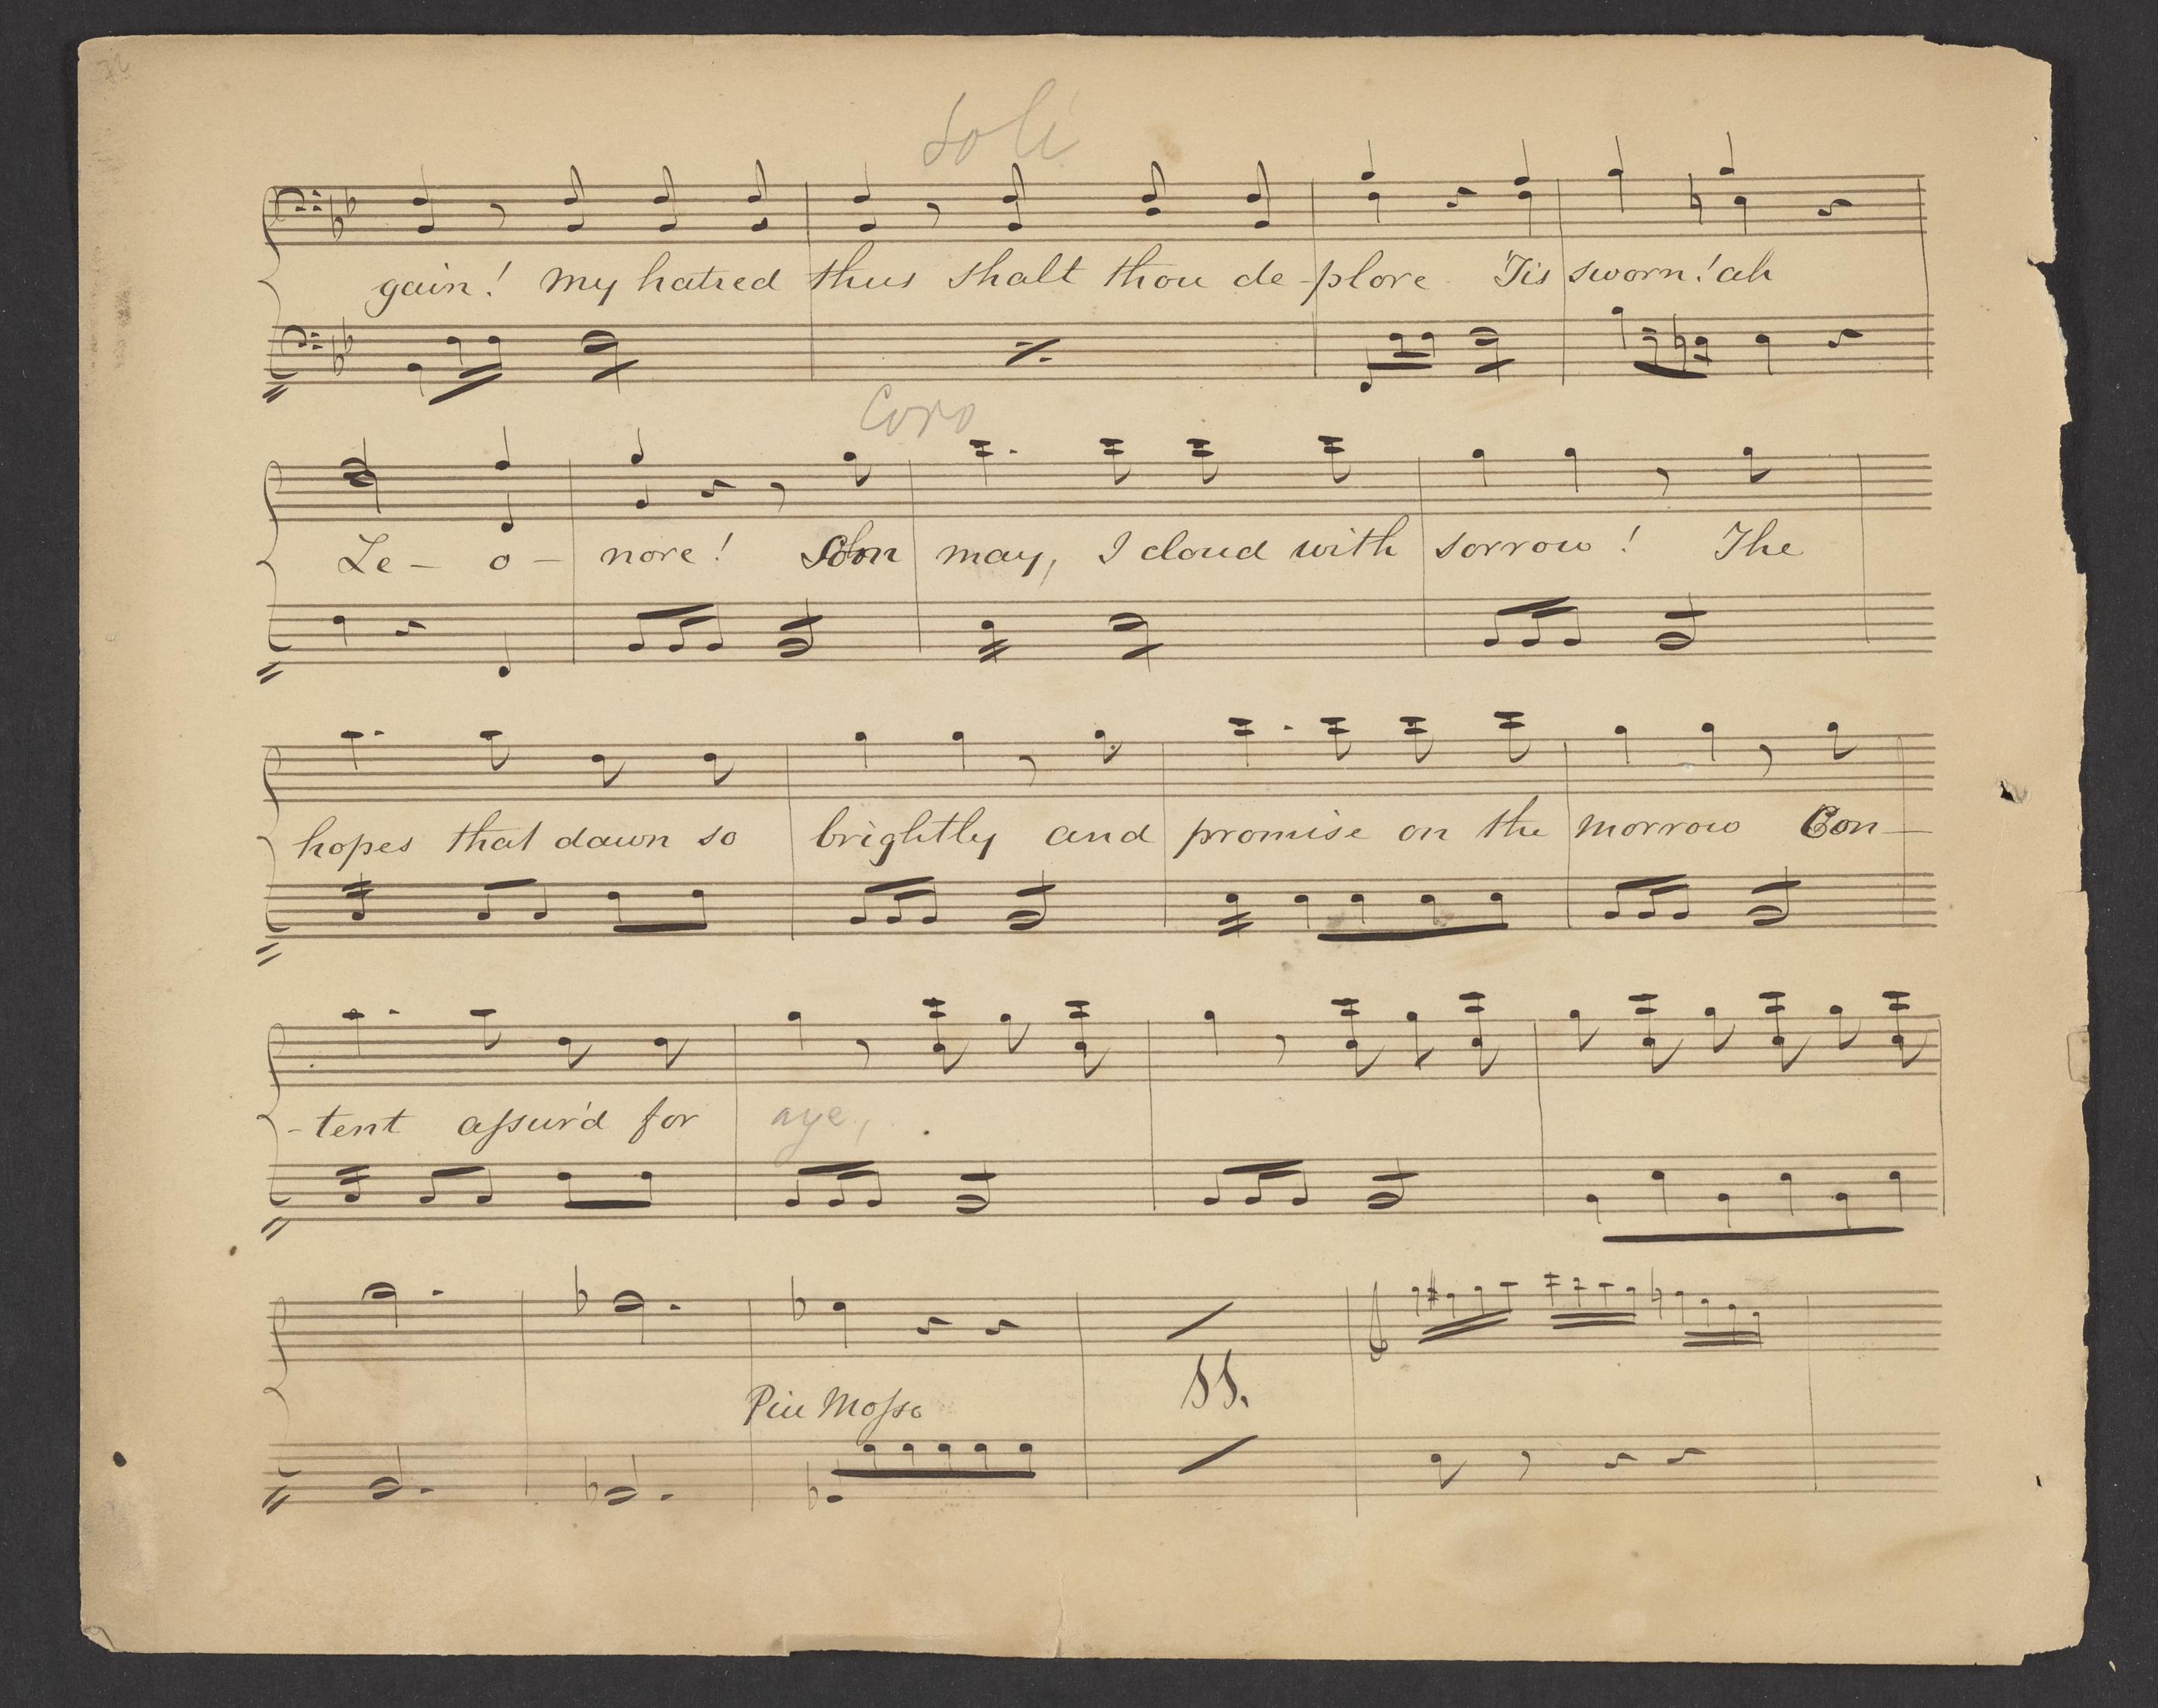 72
Soli
gain! my hatred thus shalt thou de-plore 'Tis sworn! ah
Coro
Le-o-nore! may, I cloud with sorrow! The
hopes that dawn so brightly and promise on the morrow Con-
-tent assur'd for aye,
Piu Mosso